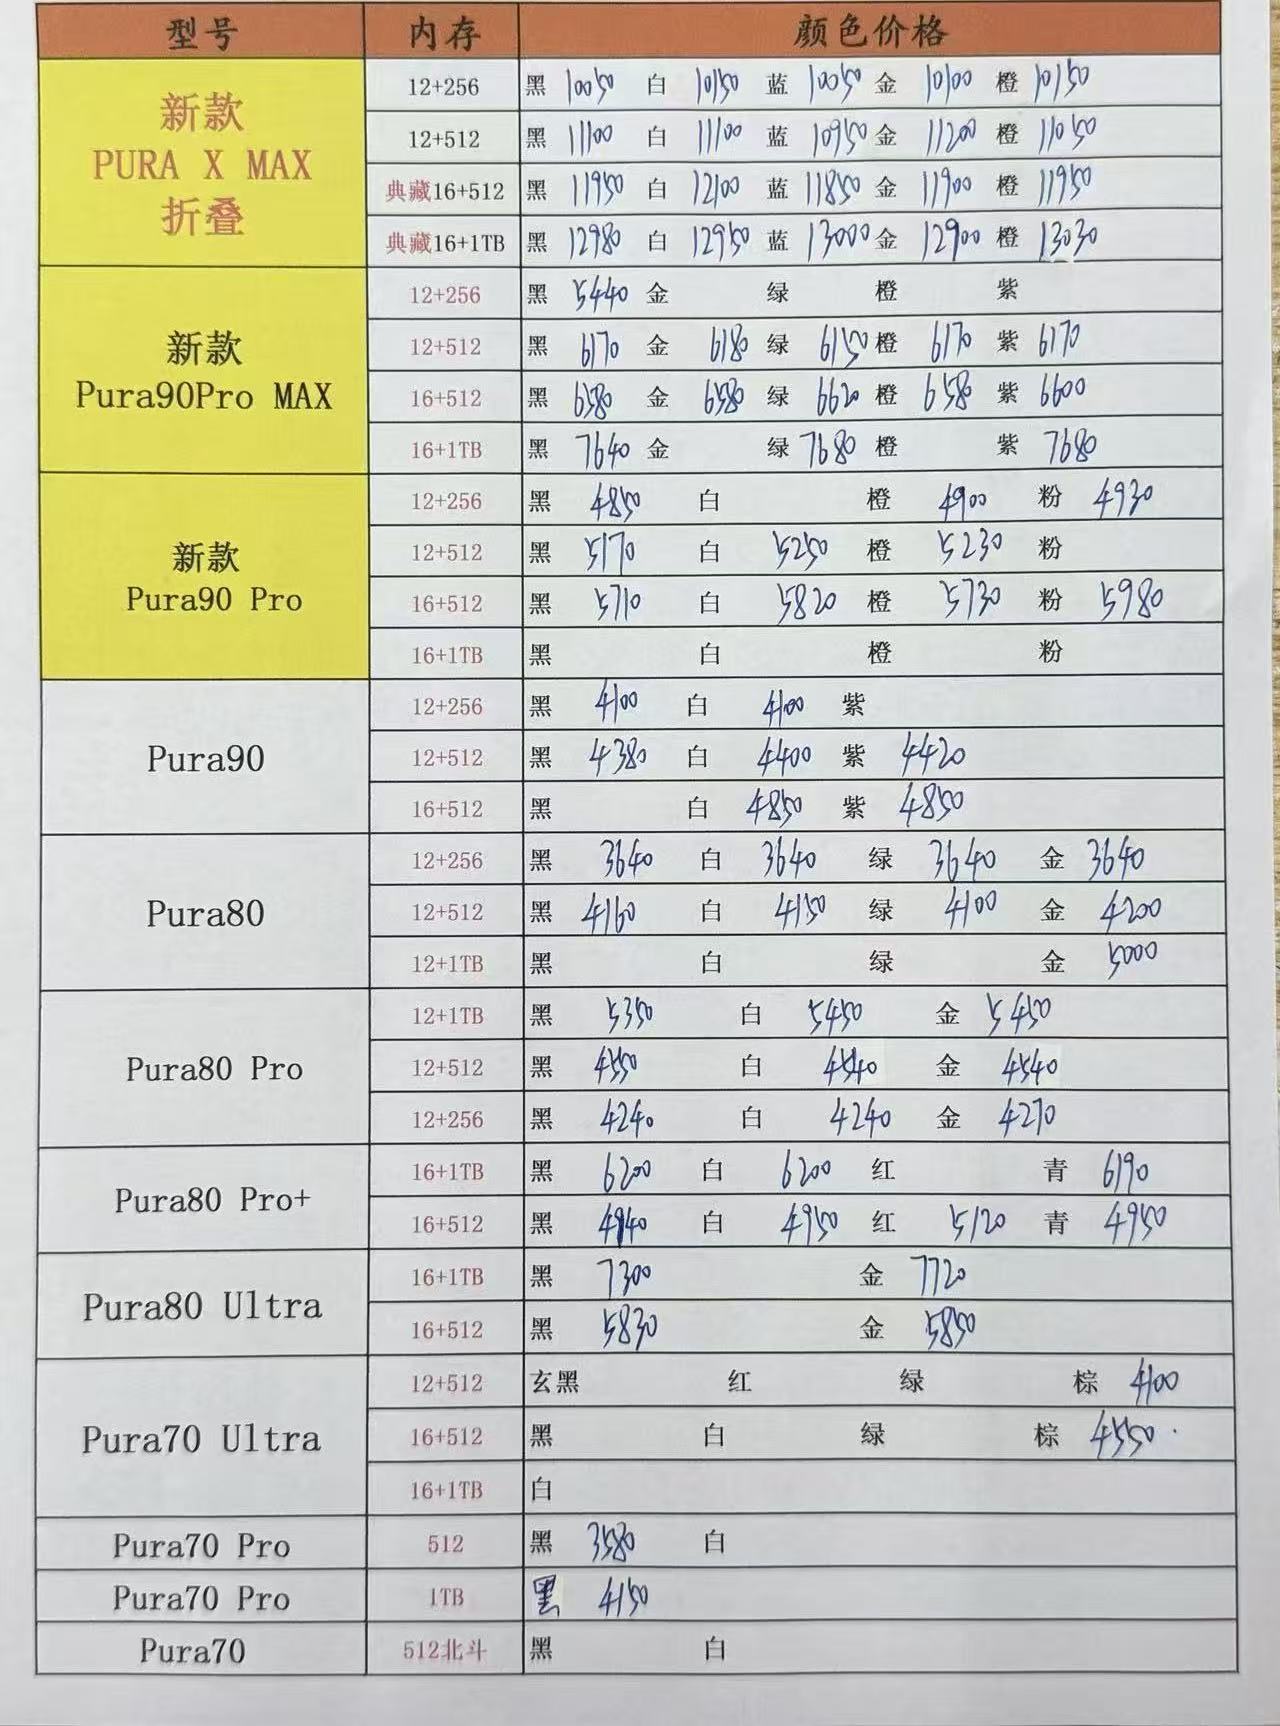 型号 内存 颜色价格
新款 PURA X MAX 折叠
12+256 黑 10050 白 10150 蓝 10050 金 10100 橙 10150
12+512 黑 11100 白 11100 蓝 10950 金 11200 橙 11050
典藏16+512 黑 11950 白 12100 蓝 11850 金 11900 橙 11950
典藏16+1TB 黑 12980 白 12950 蓝 13000 金 12900 橙 13030
新款 Pura90Pro MAX
12+256 黑 5440 金 绿 橙 紫
12+512 黑 6170 金 6180 绿 6150 橙 6170 紫 6170
16+512 黑 6580 金 6580 绿 6620 橙 6580 紫 6600
16+1TB 黑 7640 金 绿 7680 橙 紫 7680
新款 Pura90 Pro
12+256 黑 4850 白 橙 4900 粉 4930
12+512 黑 5170 白 5250 橙 5230 粉
16+512 黑 5710 白 5820 橙 5730 粉 5980
16+1TB 黑 白 橙 粉
Pura90
12+256 黑 4100 白 4100 紫
12+512 黑 4380 白 4400 紫 4420
16+512 黑 白 4850 紫 4850
Pura80
12+256 黑 3640 白 3640 绿 3640 金 3640
12+512 黑 4160 白 4150 绿 4100 金 4200
12+1TB 黑 白 绿 金 5000
Pura80 Pro
12+1TB 黑 5350 白 5450 金 5450
12+512 黑 4550 白 4540 金 4540
12+256 黑 4240 白 4240 金 4270
Pura80 Pro+
16+1TB 黑 6200 白 6200 红 青 6190
16+512 黑 4940 白 4950 红 5120 青 4950
Pura80 Ultra
16+1TB 黑 7300 金 7720
16+512 黑 5830 金 5850
Pura70 Ultra
12+512 玄黑 红 绿 棕 4100
16+512 黑 白 绿 棕 4550
16+1TB 白
Pura70 Pro 512 黑 3580 白
Pura70 Pro 1TB 黑 4150
Pura70 512北斗 黑 白